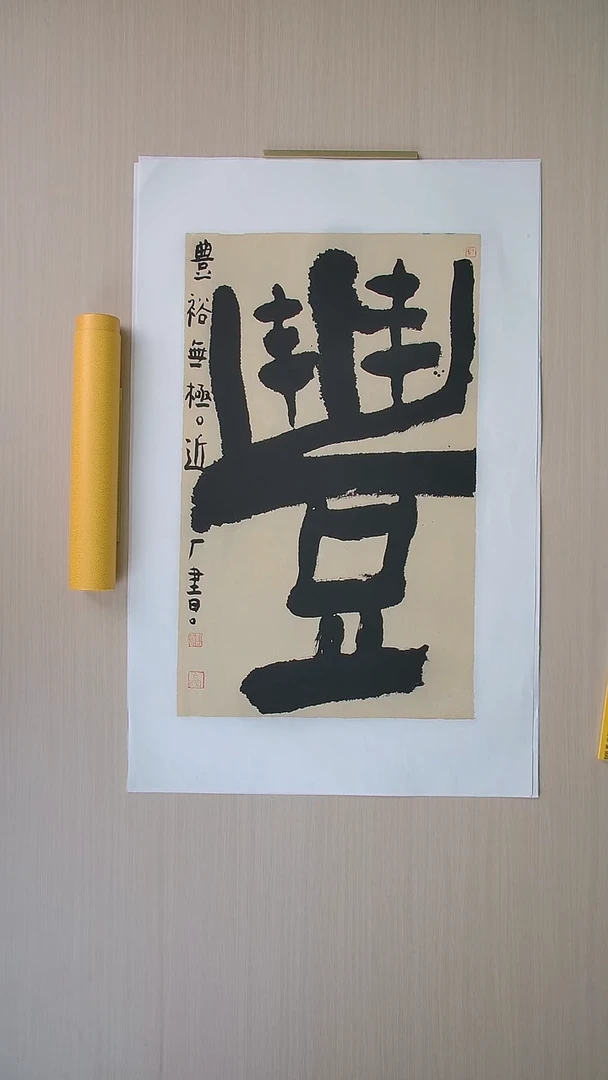 豐
豊裕無極。近
厂書。